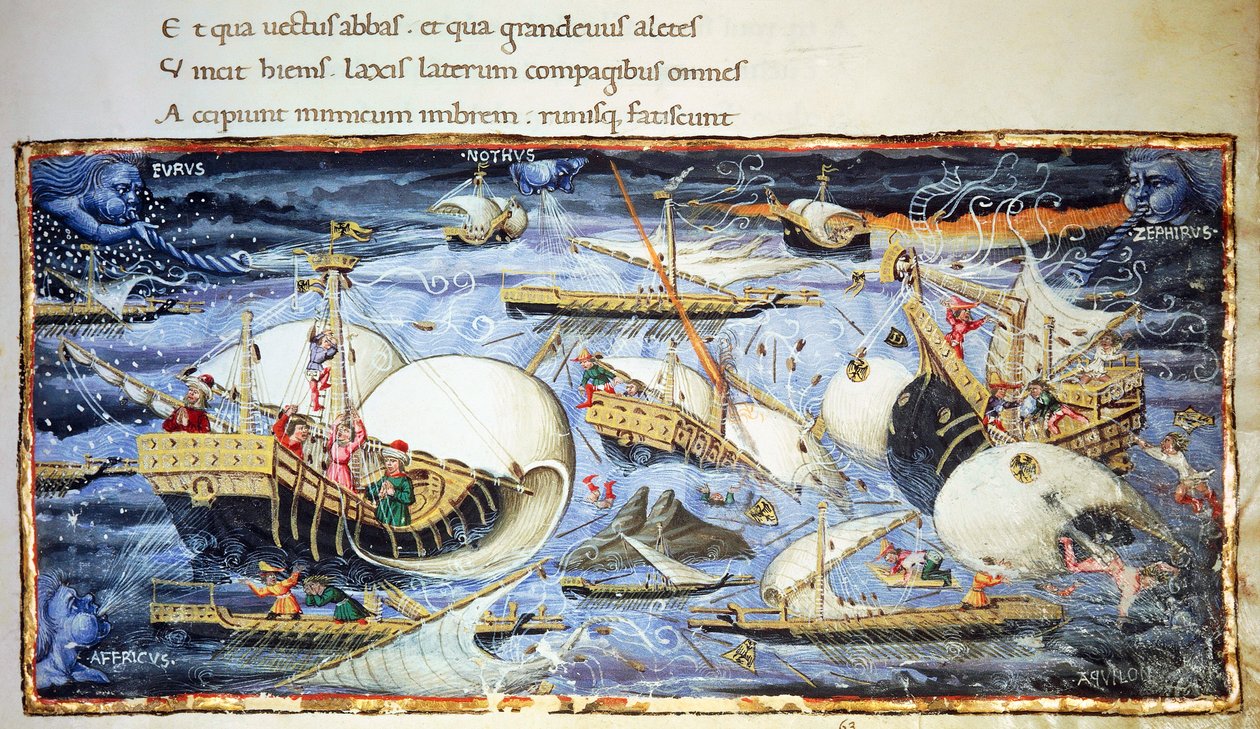 Et qua uectus abbas . et qua grandeuus aletes
Vincit hiems . laxis laterum compagibus omnes
Accipiunt inimicum imbrem : rimisq fatiscunt
EVRVS
·NOTHVS
·ZEPHIRVS·
·AFFRICVS·
·AQVILO
63